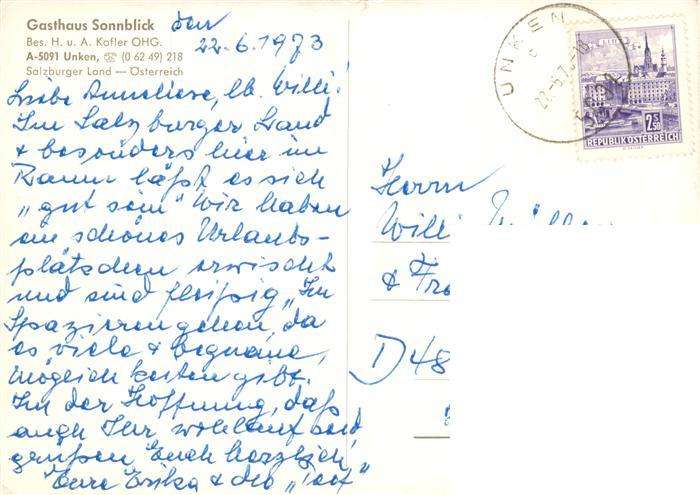 Gasthaus Sonnblick
Bes. H. u. A. Kofler OHG.
A-5091 Unken, ☏ (0 62 49) 218
Salzburger Land — Österreich
den
22.6.1973
Liebe Anneliese, lb. Willi!
Im Salzburger Land
+ besonders hier im
Raum läßt es sich
„gut sein" Wir haben
ein schönes Urlaubs-
plätschen erwischt
und sind fleißig „Im
Spazieren gehen, da
es viele + bequeme,
Möglichkeiten gibt.
In der Hoffnung, daß
auch Ihr wohlauf seid
grüßen Euch herzlich
Eure Erika & der
UNKEN
2S50
REPUBLIK ÖSTERREICH
Herrn
Willi
& Fr
D 48